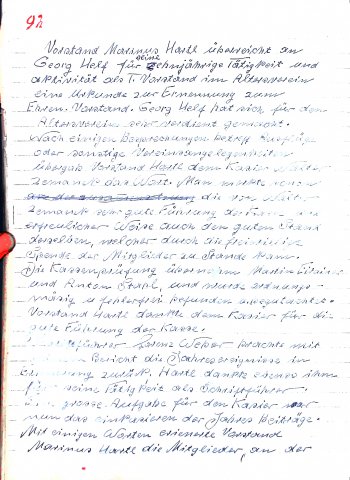 92
Vorstand Marinus Hartl überreicht an
Georg Helf für seine zehnjährige Tätigkeit und
Aktivität als I. Vorstand im Altersverein
eine Urkunde zur Ernennung zum
Ehren. Vorstand. Georg Helf hat sich für den
Altersverein sehr verdient gemacht.
Nach einigen Besprechungen betreff Ausflüge
oder sonstige Vereinsangelegenheiten
übergab Vorstand Hartl dem Kasier Walter
das Wort. Man merkte
die von Walter
sehr gute Führung der
erfreulicher Weise auch den guten Stand
derselben, welcher durch die freiwillige
Spende der Mitglieder zu Stande kam.
Die Kassenprüfung übernahm Martin
und Anton und wurde ordnungs-
mäsig u. fehlerfrei befunden
Vorstand Hartl dankte dem Kasier für die
gute Führung der Kasse.
Weber brachte mit
Bericht die Jahresereignisse in
zurück. Hartl dankte ebenso ihm
für seine Tätigkeit als Schriftführer.
grosse Aufgabe für den Kasier war
nun das einkasieren der Jahres Beiträge.
Mit einigen Worten erinnerte Vorstand
Marinus Hartl die Mitglieder, an der